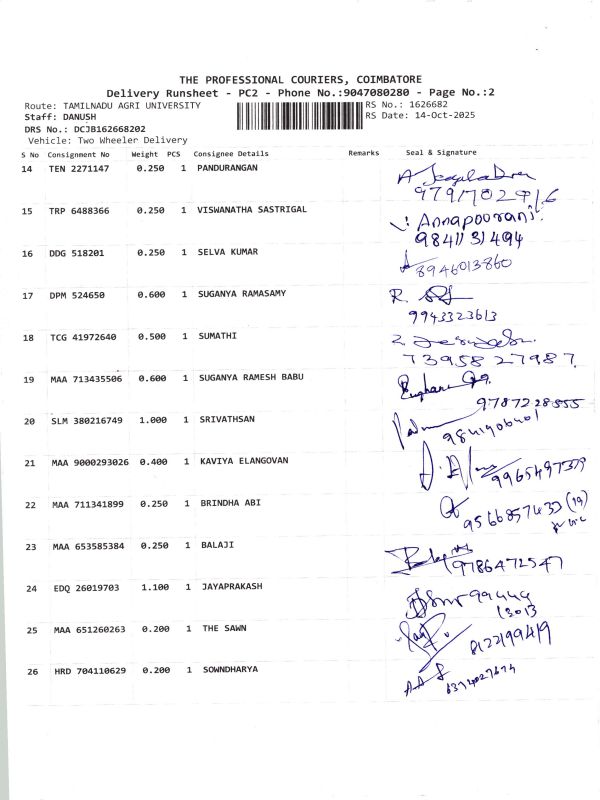 THE PROFESSIONAL COURIERS, COIMBATORE
Delivery Runsheet - PC2 - Phone No.:9047080280 - Page No.:2
Route: TAMILNADU AGRI UNIVERSITY RS No.: 1626682
Staff: DANUSH RS Date: 14-Oct-2025
DRS No.: DCJB162668202
Vehicle: Two Wheeler Delivery
S No Consignment No Weight PCS Consignee Details Remarks Seal & Signature
14 TEN 2271147 0.250 1 PANDURANGAN
15 TRP 6488366 0.250 1 VISWANATHA SASTRIGAL
V. Annapoorani.
9841131494
16 DDG 518201 0.250 1 SELVA KUMAR
8946013860
17 DPM 524650 0.600 1 SUGANYA RAMASAMY R.
9943323613
18 TCG 41972640 0.500 1 SUMATHI
7395827987.
19 MAA 713435506 0.600 1 SUGANYA RAMESH BABU
9787228555
20 SLM 380216749 1.000 1 SRIVATHSAN
9841906401
21 MAA 9000293026 0.400 1 KAVIYA ELANGOVAN
9965497379
22 MAA 711341899 0.250 1 BRINDHA ABI
9566857433
23 MAA 653585384 0.250 1 BALAJI
9786472547
24 EDQ 26019703 1.100 1 JAYAPRAKASH
99444
13013
25 MAA 651260263 0.200 1 THE SAWN
8122199419
26 HRD 704110629 0.200 1 SOWNDHARYA
6374027674